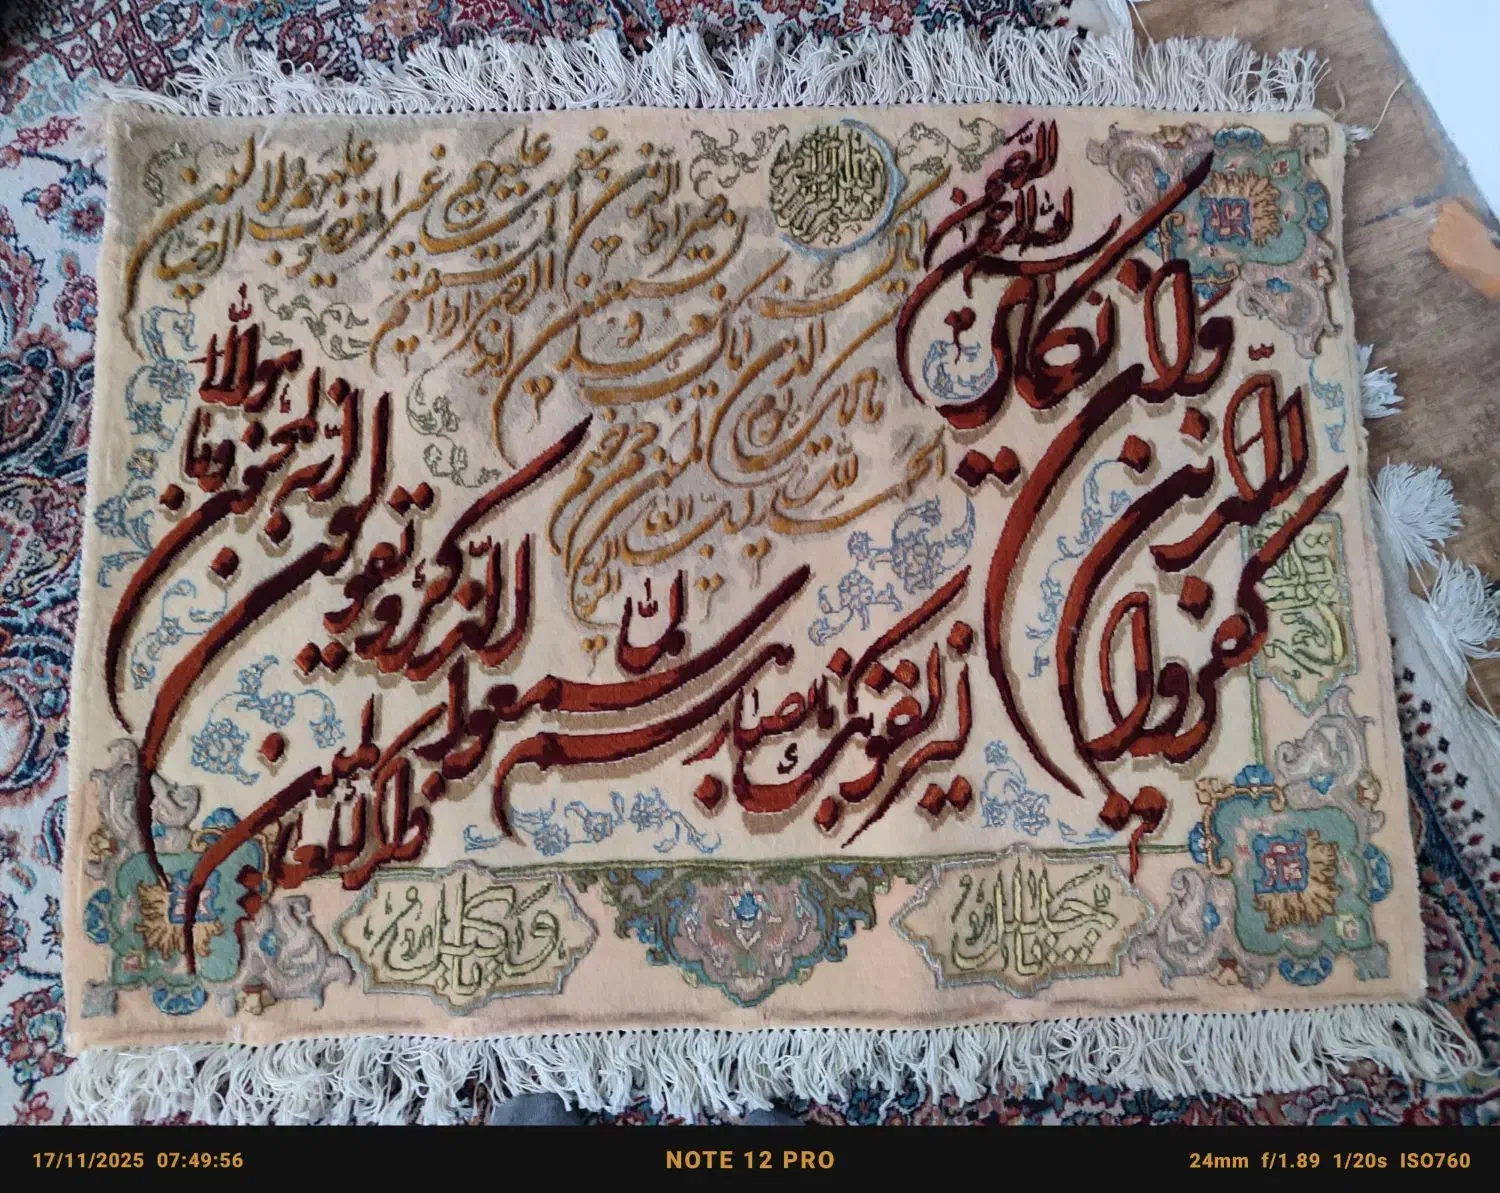 بسم الله الرحمن الرحیم
وان یکاد
الذین
کفروا
لیزلقونک بابصارهم لما
سمعوا
الذکر ویقولون
انه لمجنون وما هو الا
ذکر للعالمین
الحمد لله رب العالمین
الرحمن الرحیم
مالک یوم الدین
ایاک نعبد و ایاک نستعین
اهدنا الصراط المستقیم
صراط الذین انعمت علیهم غیر المغضوب علیهم ولا الضالین
17/11/2025 07:49:56
NOTE 12 PRO
24mm f/1.89 1/20s ISO760